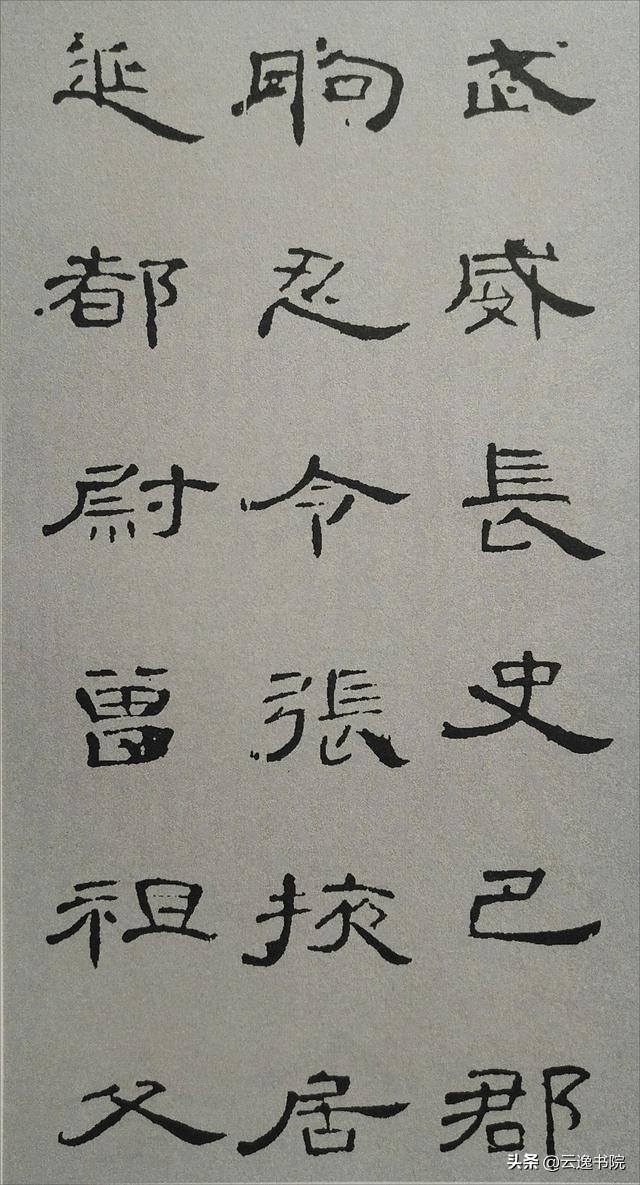 武威長史巴郡
朐忍令張掖居
延都尉曾祖父
头条 @云逸书院